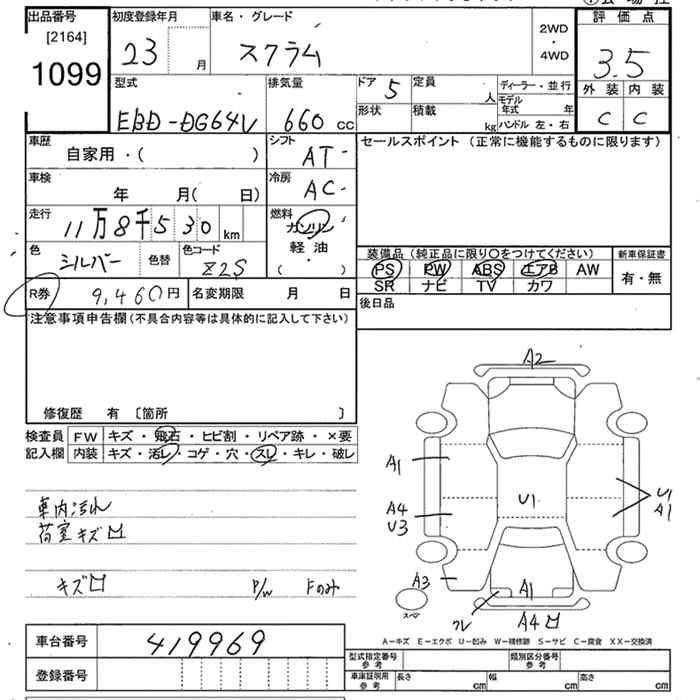 出品番号 初度登録年月 車名・グレード 評価点
[2164] 2WD
1099 23 月 スクラム ・ 3.5
4WD
型式 排気量 ドア 5 定員 人 ディーラー・並行 外装 内装
モデル年式 年
EBD-DG64V 660 CC 形状 積載 kg ハンドル 左・右 C C
車歴 シフト セールスポイント (正常に機能するものに限ります)
自家用・( ) AT-
車検 冷房
年 月( 日) AC-
走行 燃料
11万8千530 km ガソリン
色 色替 色コード 軽油
シルバー Z2S (・)
装備品 (純正品に限り○をつけてください) 新車保証書
PS PW ABS エアB AW 有・無
SR ナビ TV カワ
R券 9,460円 名変期限 月 日 後日品
注意事項申告欄 (不具合内容等は具体的に記入して下さい)
修復歴 有 〔箇所 〕
検査員 FW キズ・飛石・ヒビ割・リペア跡・×要
記入欄 内装 キズ・汚レ・コゲ・穴・スレ・キレ・破レ
車内汚れ
荷室キズ凹
キズ凹 P/w Fのみ
A2
A1
U1
U1
A1
A4
U3
A3
A1
スペア
クレ
A4凹
A-キズ E-エクボ U-凹み W-補修跡 S-サビ C-腐食 XX-交換済
車台番号 419969
登録番号
型式指定番号 参考 類別区分番号 参考
車庫証明用 参考 長さ cm 幅 cm 高さ cm